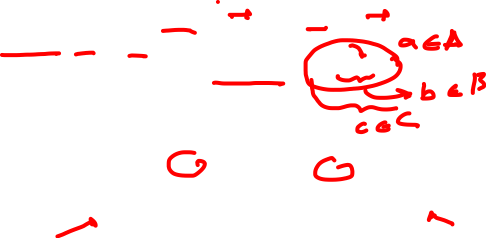 a ∈ A
b ∈ B
c ∈ C